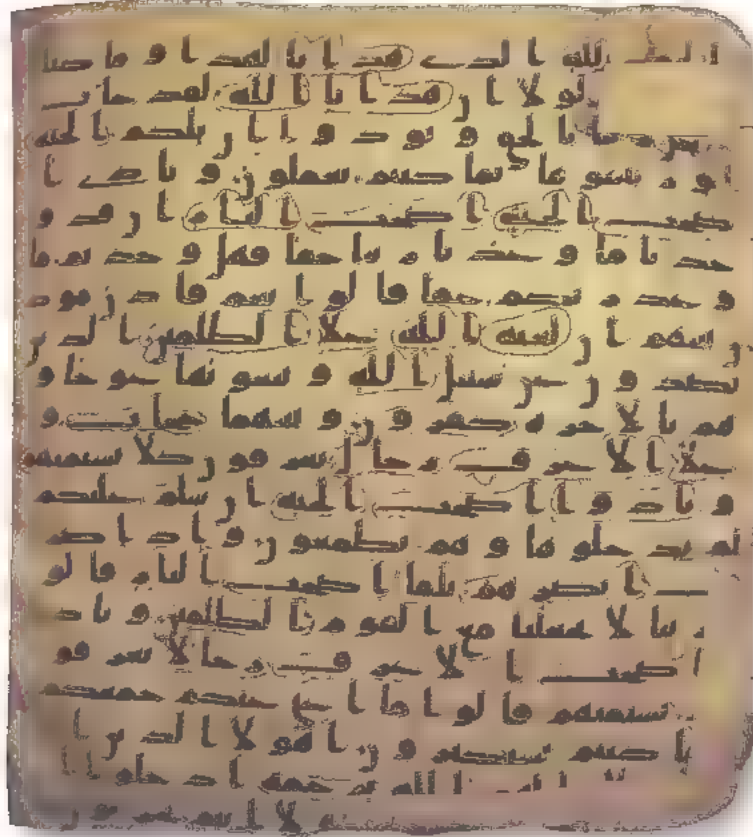 الحمد لله الذى هدانا لهذا و ما كنا
لولا ان هدانا الله لقد جات
ربنا بالحق و نودوا ان تلكم الجنه
بما كنتم تعملون و نادى ا
صحب الجنه اصحب النار ان قد و
جدنا ما وعدنا ربنا حقا فهل وجدتم ما
وعد ربكم حقا قالوا نعم فاذن موذن
بينهم ان لعنه الله على الظلمين الذين
يصدون عن سبيل الله و يبغونها عوجا و
هم بالاخره كفرون و بينهما حجاب و
على الاعرف رجال يعرفون كلا بسيميهم
و نادوا اصحب الجنه ان سلم عليكم
لم يدخلوها و هم يطمعون و اذا صر
فت ابصرهم تلقا اصحب النار قالو
ا ربنا لا تجعلنا مع القوم الظلمين و نادى
اصحب الاعرف رجالا يعرفو
نهم بسيميهم قالوا ما اغنى عنكم جمعكم
و ما كنتم تستكبرون اهولا الذين
ينالهم الله برحمه ادخلوا ا
لا انتم تحزنون